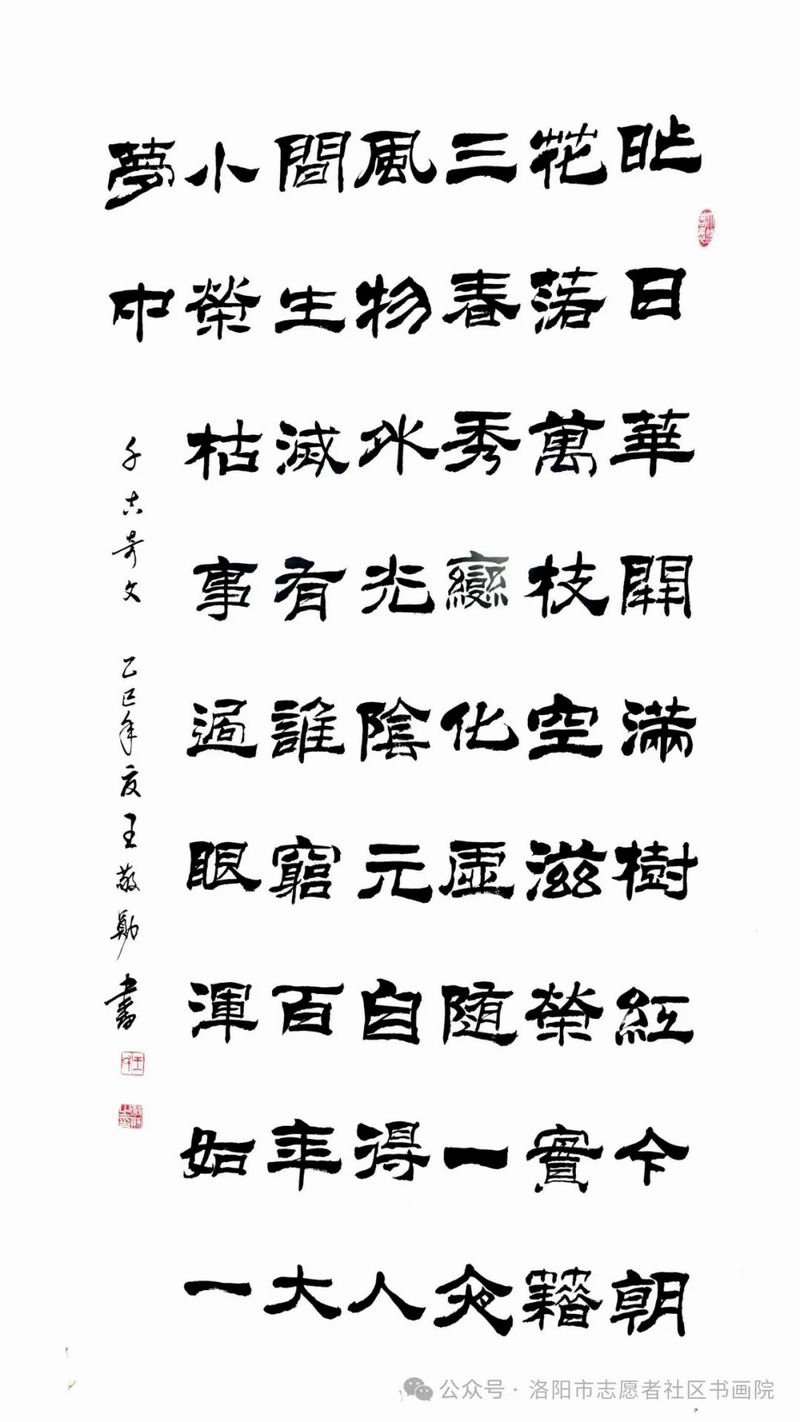 昨日華開滿樹紅今朝
花落萬枝空滋榮實藉
三春秀變化虛随一夜
風物外光陰元自得人
間生滅有誰窮百年大
小榮枯事過眼渾如一
夢中
千古奇文 乙巳年夏王敬勛書
公众号·洛阳市志愿者社区书画院